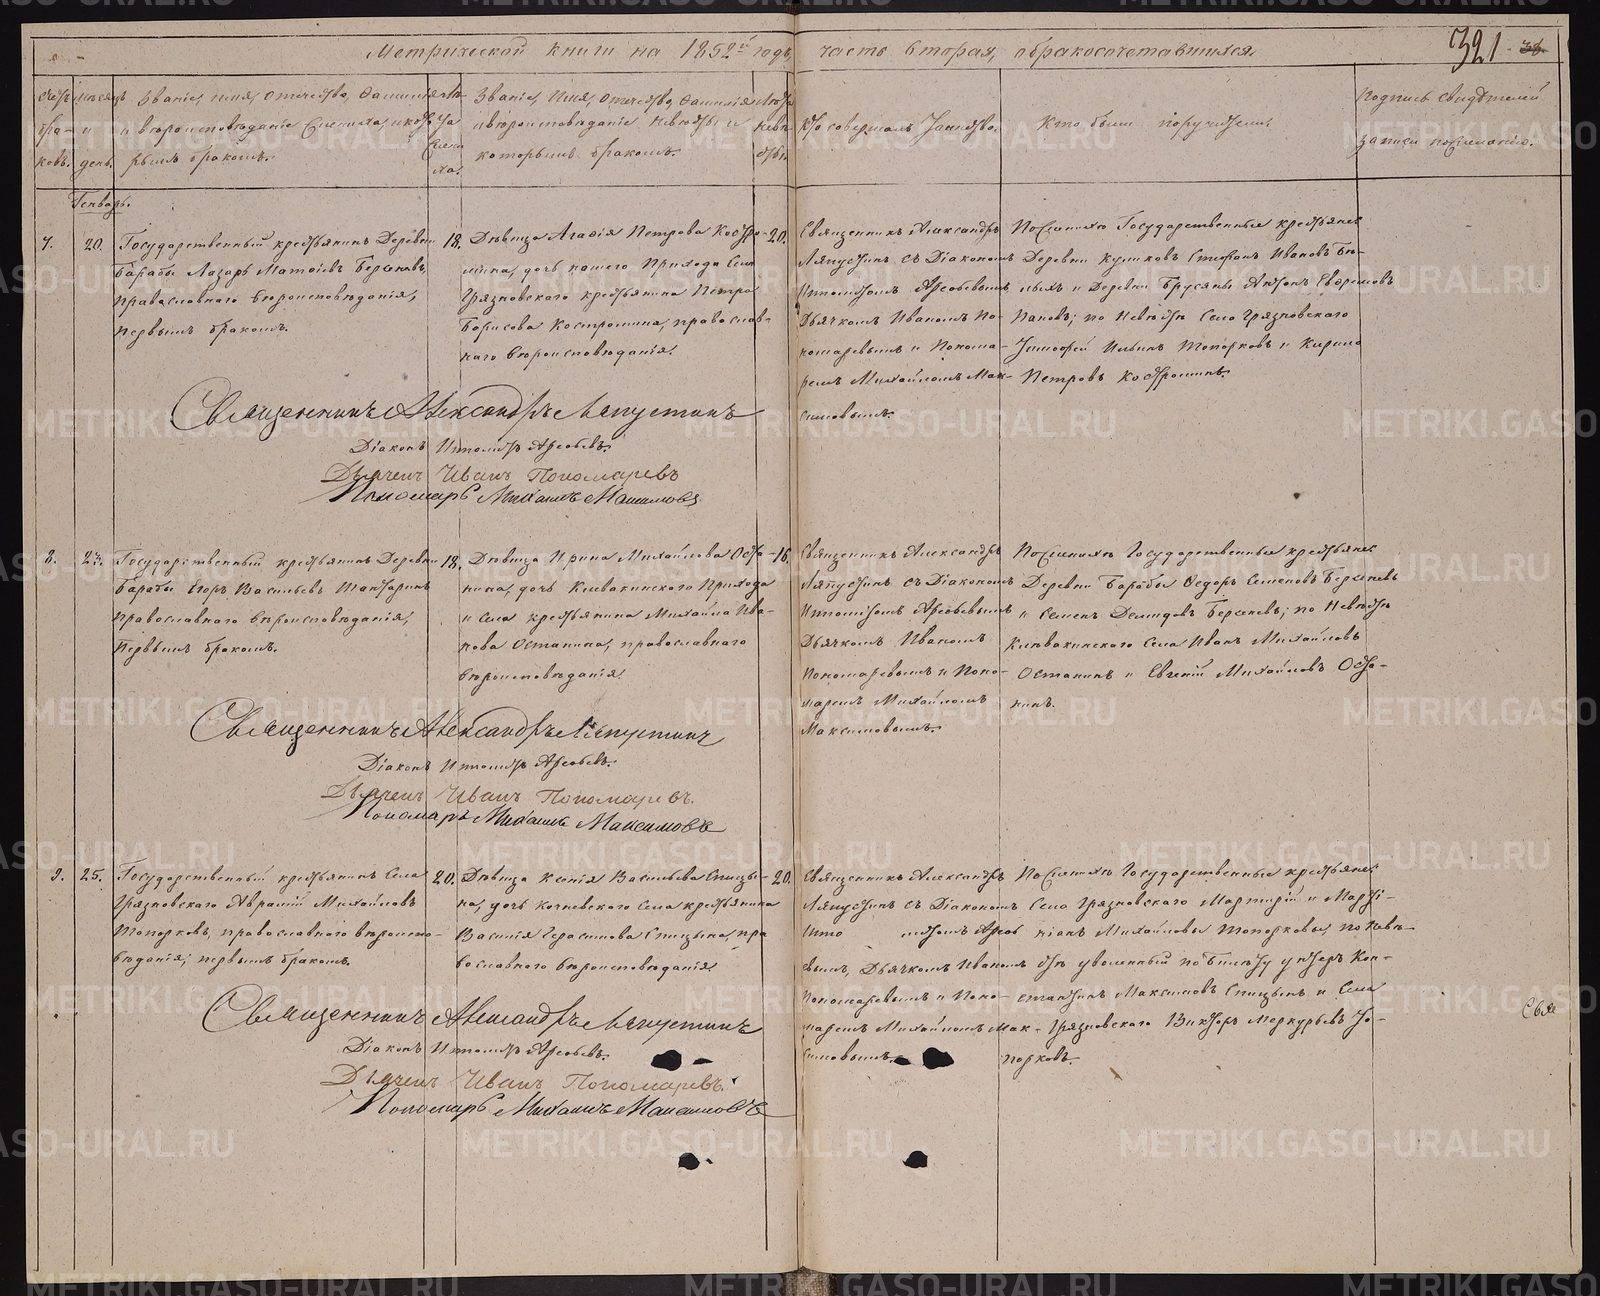 Метрической книги на 1852й годъ часть вторая, о бракосочетавшихся
321
Счетъ браковъ.
Мѣсяцъ и день.
Званіе, имя, отчество, фамилія и вѣроисповѣданіе жениха, и которымъ бракомъ.
Лѣта жениха.
Званіе, имя, отчество, фамилія и вѣроисповѣданіе невѣсты и которымъ бракомъ.
Лѣта невѣсты
Кто совершалъ Таинство.
Кто были поручители.
Подпись свидѣтелей записи по желанію.
Генварь.
7.
20.
Государственный крестьянинъ Деревни
Барабы Лазарь Матѳіевъ Берсеневъ,
православнаго вѣроисповѣданія,
первымъ бракомъ.
18.
Дѣвица Агафія Петрова Костро-
мина, дочь нашего Прихода Села
Грязновского крестьянина Петра
Борисова Костромина, православ-
наго вѣроисповѣданія.
20.
Священникъ Александръ
Ляпустинъ съ Діакономъ
Ипполитомъ Арсеьевымъ
Дьячкомъ Иваномъ По-
номаревымъ и Понома-
ремъ Михайломъ Мак-
симовымъ.
По женихѣ Государственные крестьяне
Деревни Куликовъ Стефанъ Ивановъ Бы-
ныхъ и Деревни Брусяны Антонъ Евфремовъ
Пановъ; по Невѣстѣ Села Грязновского
Тимофей Ильинъ Топорковъ и Кирило
Петровъ Костроминъ.
Священникъ Александръ Ляпустинъ
Діаконъ Ипполитъ Арсеьевъ.
Дьячекъ Иванъ Пономаревъ
Пономарь Михаилъ Максимовъ
8.
23.
Государственный крестьянинъ Деревни
Барабы Егоръ Васильевъ Шантаринъ
православнаго вѣроисповѣданія,
Первымъ бракомъ.
18.
Дѣвица Ирина Михайлова Оста-
нина, дочь Клевакинского Прихода
и Села крестьянина Михайла Ива-
нова Останина, православнаго
вѣроисповѣданія.
16.
Священникъ Александръ
Ляпустинъ съ Діакономъ
Ипполитомъ Арсеьевымъ
Дьячкомъ Иваномъ
Пономаревымъ и Поно-
маремъ Михайломъ
Максимовымъ.
По женихѣ Государственные крестьяне
Деревни Барабы Федоръ Семеновъ Берсеневъ
и Семенъ Демидовъ Берсеневъ; по Невѣстѣ
Клевакинского Села Иванъ Михайловъ
Останинъ и Евгеній Михайловъ Оста-
нинъ.
Священникъ Александръ Ляпустинъ
Діаконъ Ипполитъ Арсеьевъ.
Дьячекъ Иванъ Пономаревъ.
Пономарь Михаилъ Максимовъ
9.
25.
Государственный крестьянинъ Села
Грязновского Авраамій Михайловъ
Топорковъ, православнаго вѣроиспо-
вѣданія; первымъ бракомъ.
20.
Дѣвица Ксенія Васильева Спицы-
на, дочь Кочневского Села крестьянина
Василія Герасимова Спицына, пра
вославнаго вѣроисповѣданія.
20.
Священникъ Александръ
Ляпустинъ съ Діакономъ
Иппо литомъ Арсеь
вымъ, Дьячкомъ Иваномъ
Пономаревымъ и Поно-
маремъ Михайломъ Мак-
симовымъ.
По женихѣ Государственные крестьяне
Села Грязновского Мартирій и Маркі-
ніанъ Михайловы Топорковы, по Невѣ-
стѣ уволенный по билету унтеръ Кон-
стантинъ Максимовъ Спицынъ и Села
Грязновского Викторъ Меркурьевъ То-
порковъ.
Свя
Священникъ Александръ Ляпустинъ
Діаконъ Ипполитъ Арсеьевъ.
Дьячекъ Иванъ Пономаревъ.
Пономарь Михаилъ Максимовъ
METRIKI.GASO-URAL.RU